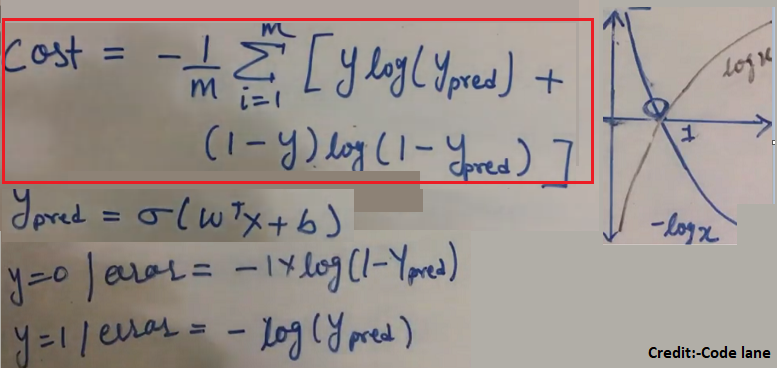 Cost = -1/m Σ_{i=1}^{m} [ y log(y_pred) +
(1-y) log(1-y_pred) ]
y_pred = σ(w^T x + b)
y=0 / error = -1 x log(1-y_pred)
y=1 / error = - log(y_pred)
log x
1
-log x
Credit:-Code lane